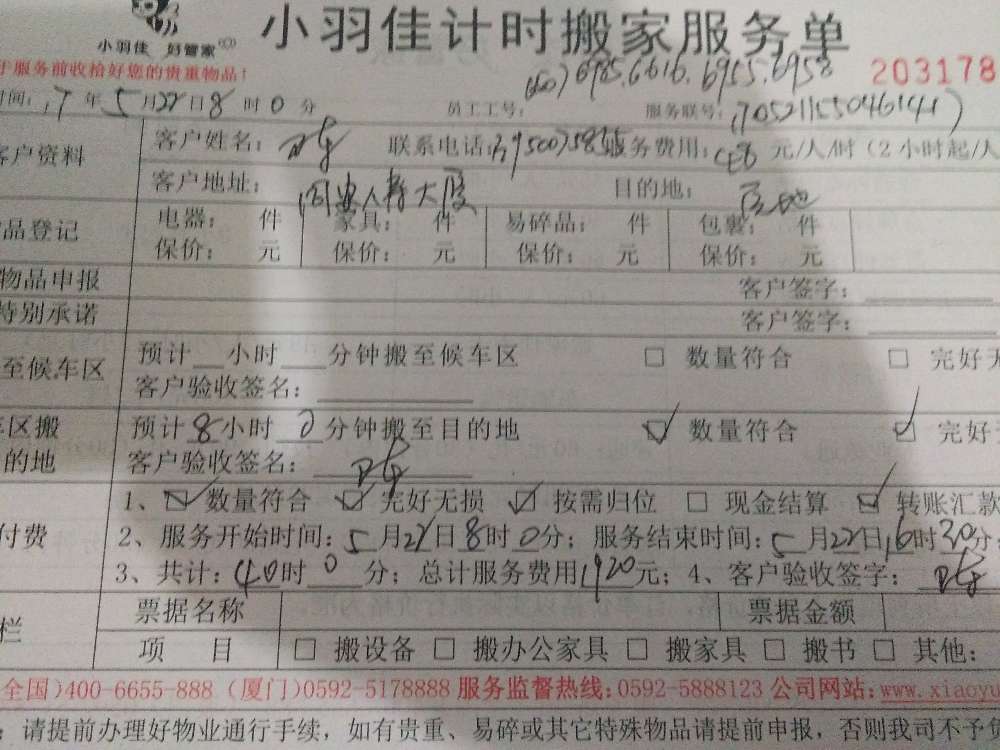 小羽佳 好管家
小羽佳计时搬家服务单
于服务前收拾好您的贵重物品！
6985.6616.6955.6958
203178
时间：17年5月22日8时0分 员工工号： 服务联号：
客户资料
客户姓名： 联系电话： 服务费用：48元/人/时（2小时起/人
客户地址： 人寿大厦 目的地：
品登记
电器： 件 家具： 件 易碎品： 件 包裹： 件
保价： 元 保价： 元 保价： 元 保价： 元
物品申报 客户签字：
特别承诺 客户签字：
至候车区
预计 小时 分钟搬至候车区 □ 数量符合 □ 完好无
客户验收签名：
车区搬
的地
预计8小时0分钟搬至目的地 ☑ 数量符合 ☑ 完好
客户验收签名：
付费
1、☑ 数量符合 ☑ 完好无损 ☑ 按需归位 □ 现金结算 ☑ 转账汇款
2、服务开始时间：5月22日8时0分；服务结束时间：5月22日16时30分；
3、共计：40时0分；总计服务费用1920元；4、客户验收签字：
栏
票据名称 票据金额
项 目 □ 搬设备 □ 搬办公家具 □ 搬家具 □ 搬书 □ 其他：
全国)400-6655-888（厦门)0592-5178888 服务监督热线：0592-5888123 公司网站：www.xiaoyu
：请提前办理好物业通行手续，如有贵重、易碎或其它特殊物品请提前申报，否则我司不予